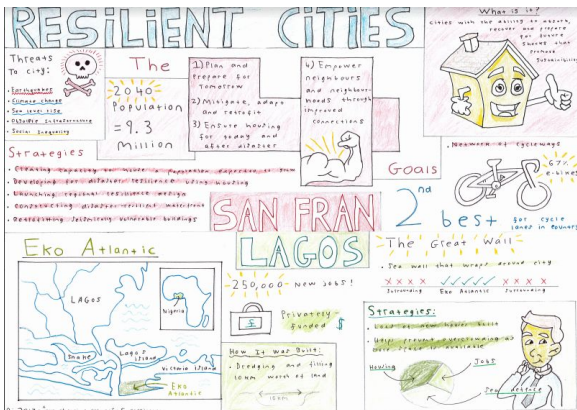 RESILIENT CITIES
What is it?
Cities with the ability to absorb,
recover and prepare
for future
shocks that
promote
sustainability
Threats
To City:
• Earthquakes
• Climate change
• Sea level rise
• Obsolete infrastructure
• Social Inequality
The
2040
Population
= 9.3
Million
1) Plan and
prepare for
tomorrow
2) Mitigate, adapt
and retrofit
3) Ensure housing
for today and
after disaster
4) Empower
neighbours
and neighbour-
hoods through
improved
connections
Goals
Strategies
• Creating capacity to house population expected to grow
• Developing for disaster resilience using housing
• Launching regional resilience design
• Constructing disaster resilient waterfront
• Retrofitting seismically vulnerable buildings
• Network of cycleways
67%
e-bikes
2nd
best
for cycle
lanes in country
SAN FRAN
LAGOS
Eko Atlantic
LAGOS
Nigeria
Lagos
Island
Victoria Island
Eko
Atlantic
250,000 New Jobs!
Privately
funded $
How It was Built:
• Dredging and filling
10km worth of land
10km
The Great Wall
• Sea wall that wraps around city
Surrounding Eko Atlantic Surrounding
Strategies:
Housing
Jobs
Sea defence